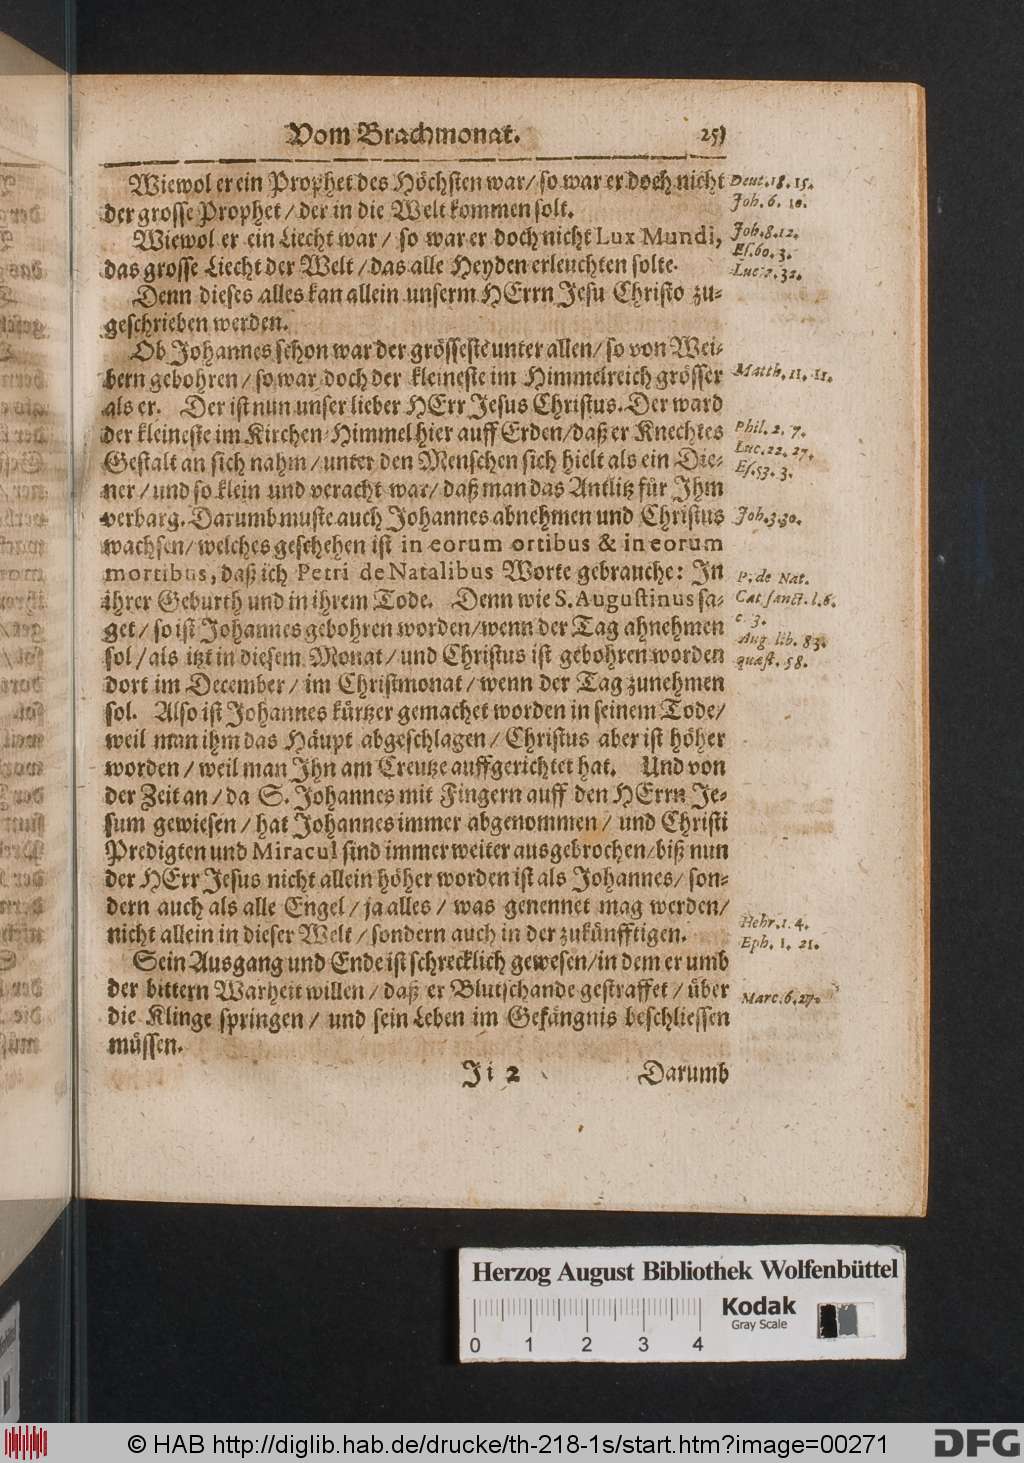 Vom Brachmonat. 251
Wiewol er ein Prophet des Höchsten war/ so war er doch nicht
der grosse Prophet/ der in die Welt kommen solt.
Wiewol er ein Liecht war/ so war er doch nicht Lux Mundi,
das grosse Liecht der Welt/ das alle Heyden erleuchten solte.
Denn dieses alles kan allein unserm HErrn Jesu Christo zu-
geschrieben werden.
Ob Johannes schon war der grösseste unter allen/ so von Wei-
bern gebohren/ so war doch der kleineste im Himmelreich grösser
als er. Der ist nun unser lieber HErr Jesus Christus. Der ward
der kleineste im Kirchen-Himmel hier auff Erden/ daß er Knechtes
Gestalt an sich nahm/ unter den Menschen sich hielt als ein Die-
ner/ und so klein und veracht war/ daß man das Antlitz für Ihm
verbarg. Darumb muste auch Johannes abnehmen und Christus
wachsen/ welches geschehen ist in eorum ortibus & in eorum
mortibus, daß ich Petri de Natalibus Worte gebrauche: In
ihrer Geburth und in ihrem Tode. Denn wie S. Augustinus sa-
get/ so ist Johannes gebohren worden/ wenn der Tag abnehmen
sol/ als itzt in diesem Monat/ und Christus ist gebohren worden
dort im December/ im Christmonat/ wenn der Tag zunehmen
sol. Also ist Johannes kürtzer gemachet worden in seinem Tode/
weil man ihm das Häupt abgeschlagen/ Christus aber ist höher
worden/ weil man Ihn am Creutze auffgerichtet hat. Und von
der Zeit an/ da S. Johannes mit Fingern auff den HErrn Je-
sum gewiesen/ hat Johannes immer abgenommen/ und Christi
Predigten und Miracul sind immer weiter ausgebrochen/ biß nun
der HErr Jesus nicht allein höher worden ist als Johannes/ son-
dern auch als alle Engel/ ja alles/ was genennet mag werden/
nicht allein in dieser Welt/ sondern auch in der zukünfftigen.
Sein Ausgang und Ende ist schrecklich gewesen/ in dem er umb
der bittern Warheit willen/ daß er Blutschande gestraffet/ über
die Klinge springen/ und sein Leben im Gefängnis beschliessen
müssen.
Ji 2 Darumb
Deut. 18. 15.
Joh. 6. 10.
Joh. 8. 12.
Es. 60. 3.
Luc. 2. 32.
Matth. 11. 11.
Phil. 2. 7.
Luc. 22. 27.
Es. 53. 3.
Joh. 3. 30.
P. de Nat.
Cat. sanct. l. 6.
c. 3.
Aug. lib. 83.
quæst. 58.
Hebr. 1. 4.
Eph. 1. 21.
Marc. 6. 27.
Herzog August Bibliothek Wolfenbüttel
0 1 2 3 4
Kodak
Gray Scale
© HAB http://diglib.hab.de/drucke/th-218-1s/start.htm?image=00271
DFG